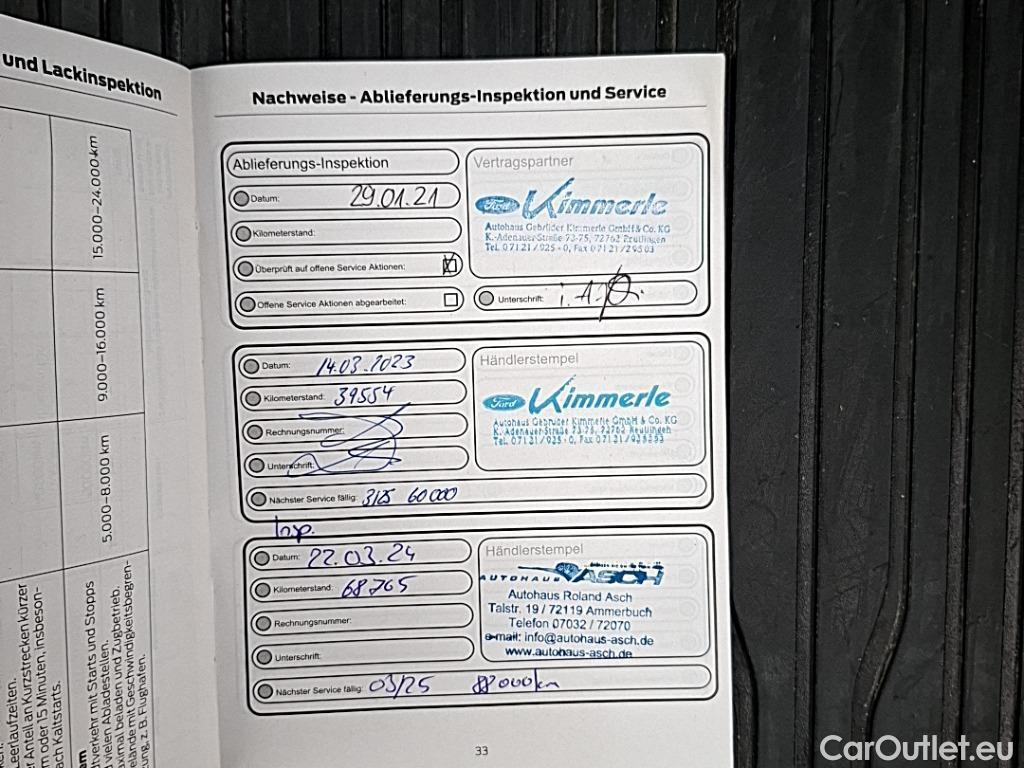 und Lackinspektion
15.000–24.000 km
9.000–16.000 km
5.000–8.000 km
Leerlaufzeiten.
Anteil an Kurzstrecken kürzer
oder 15 Minuten, insbeson-
Kaltstarts.
am
verkehr mit Starts und Stopps
vielen Abladestellen.
beladen und Zugbetrieb.
mit Geschwindigkeitsbegren-
z. B. Flughafen.
Nachweise - Ablieferungs-Inspektion und Service
Ablieferungs-Inspektion
Datum: 29.01.21
Kilometerstand:
Überprüft auf offene Service Aktionen:
Offene Service Aktionen abgearbeitet:
Vertragspartner
Ford Kimmerle
Autohaus Gebrüder Kimmerle GmbH & Co. KG
K.-Adenauer-Straße 73-75, 72762 Reutlingen
Tel. 07121/925-0, Fax 07121/29503
Unterschrift:
Datum: 14.03.2023
Kilometerstand: 39554
Rechnungsnummer:
Unterschrift:
Händlerstempel
Ford Kimmerle
Autohaus Gebrüder Kimmerle GmbH & Co. KG
K. Adenauer-Straße 73-75, 72762 Reutlingen
Tel. 07121/925-0, Fax 07121/
Nächster Service fällig: 3/25 60000
Insp.
Datum: 22.03.24
Kilometerstand: 68765
Rechnungsnummer:
Unterschrift:
Händlerstempel
AUTOHAUS ASCH
Autohaus Roland Asch
Talstr. 19 / 72119 Ammerbuch
Telefon 07032 / 72070
e-mail: info@autohaus-asch.de
www.autohaus-asch.de
Nächster Service fällig: 03/25 88000km
33
CarOutlet.eu